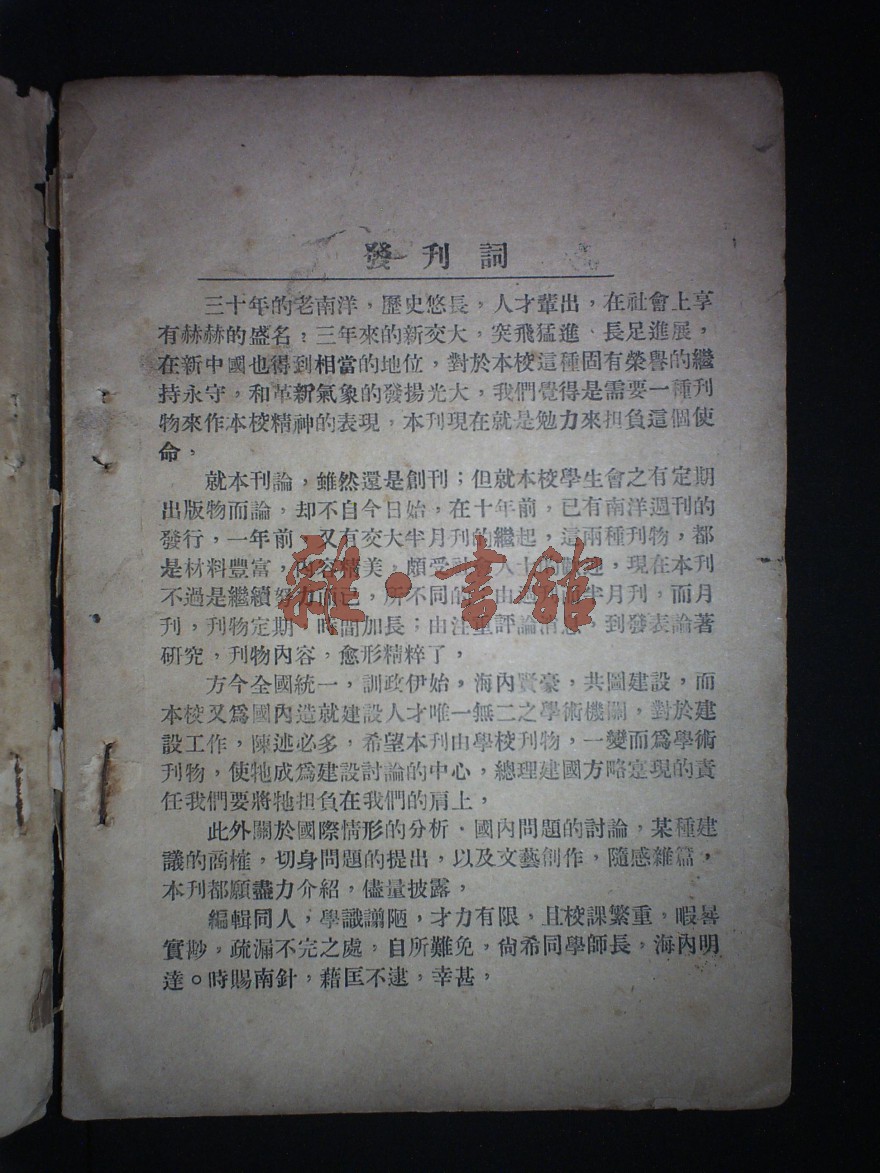 發刊詞
三十年的老南洋，歷史悠長，人才輩出，在社會上享
有赫赫的盛名；三年來的新交大，突飛猛進、長足進展，
在新中國也得到相當的地位，對於本校這種固有榮譽的繼
持永守，和革新氣象的發揚光大，我們覺得是需要一種刊
物來作本校精神的表現，本刊現在就是勉力來担負這個使
命，
就本刊論，雖然還是創刊；但就本校學生會之有定期
出版物而論，却不自今日始，在十年前，已有南洋週刊的
發行，一年前，又有交大半月刊的繼起，這兩種刊物，都
是材料豐富，內容精美，頗受社會人士的歡迎，現在本刊
不過是繼續努力而已，所不同的，由週刊而半月刊，而月
刊，刊物定期，時間加長；由注重評論消息，到發表論著
研究，刊物內容，愈形精粹了，
方今全國統一，訓政伊始，海內賢豪，共圖建設，而
本校又爲國內造就建設人才唯一無二之學術機關，對於建
設工作，陳述必多，希望本刊由學校刊物，一變而爲學術
刊物，使牠成爲建設討論的中心，總理建國方略寔現的責
任我們要將牠担負在我們的肩上，
此外關於國際情形的分析、國內問題的討論，某種建
議的商榷，切身問題的提出，以及文藝創作，隨感雜篇，
本刊都願盡力介紹，儘量披露，
編輯同人，學識譾陋，才力有限，且校課繁重，暇晷
實尠，疏漏不完之處，自所難免，尙希同學師長，海內明
達。時賜南針，藉匡不逮，幸甚，
雜·書館